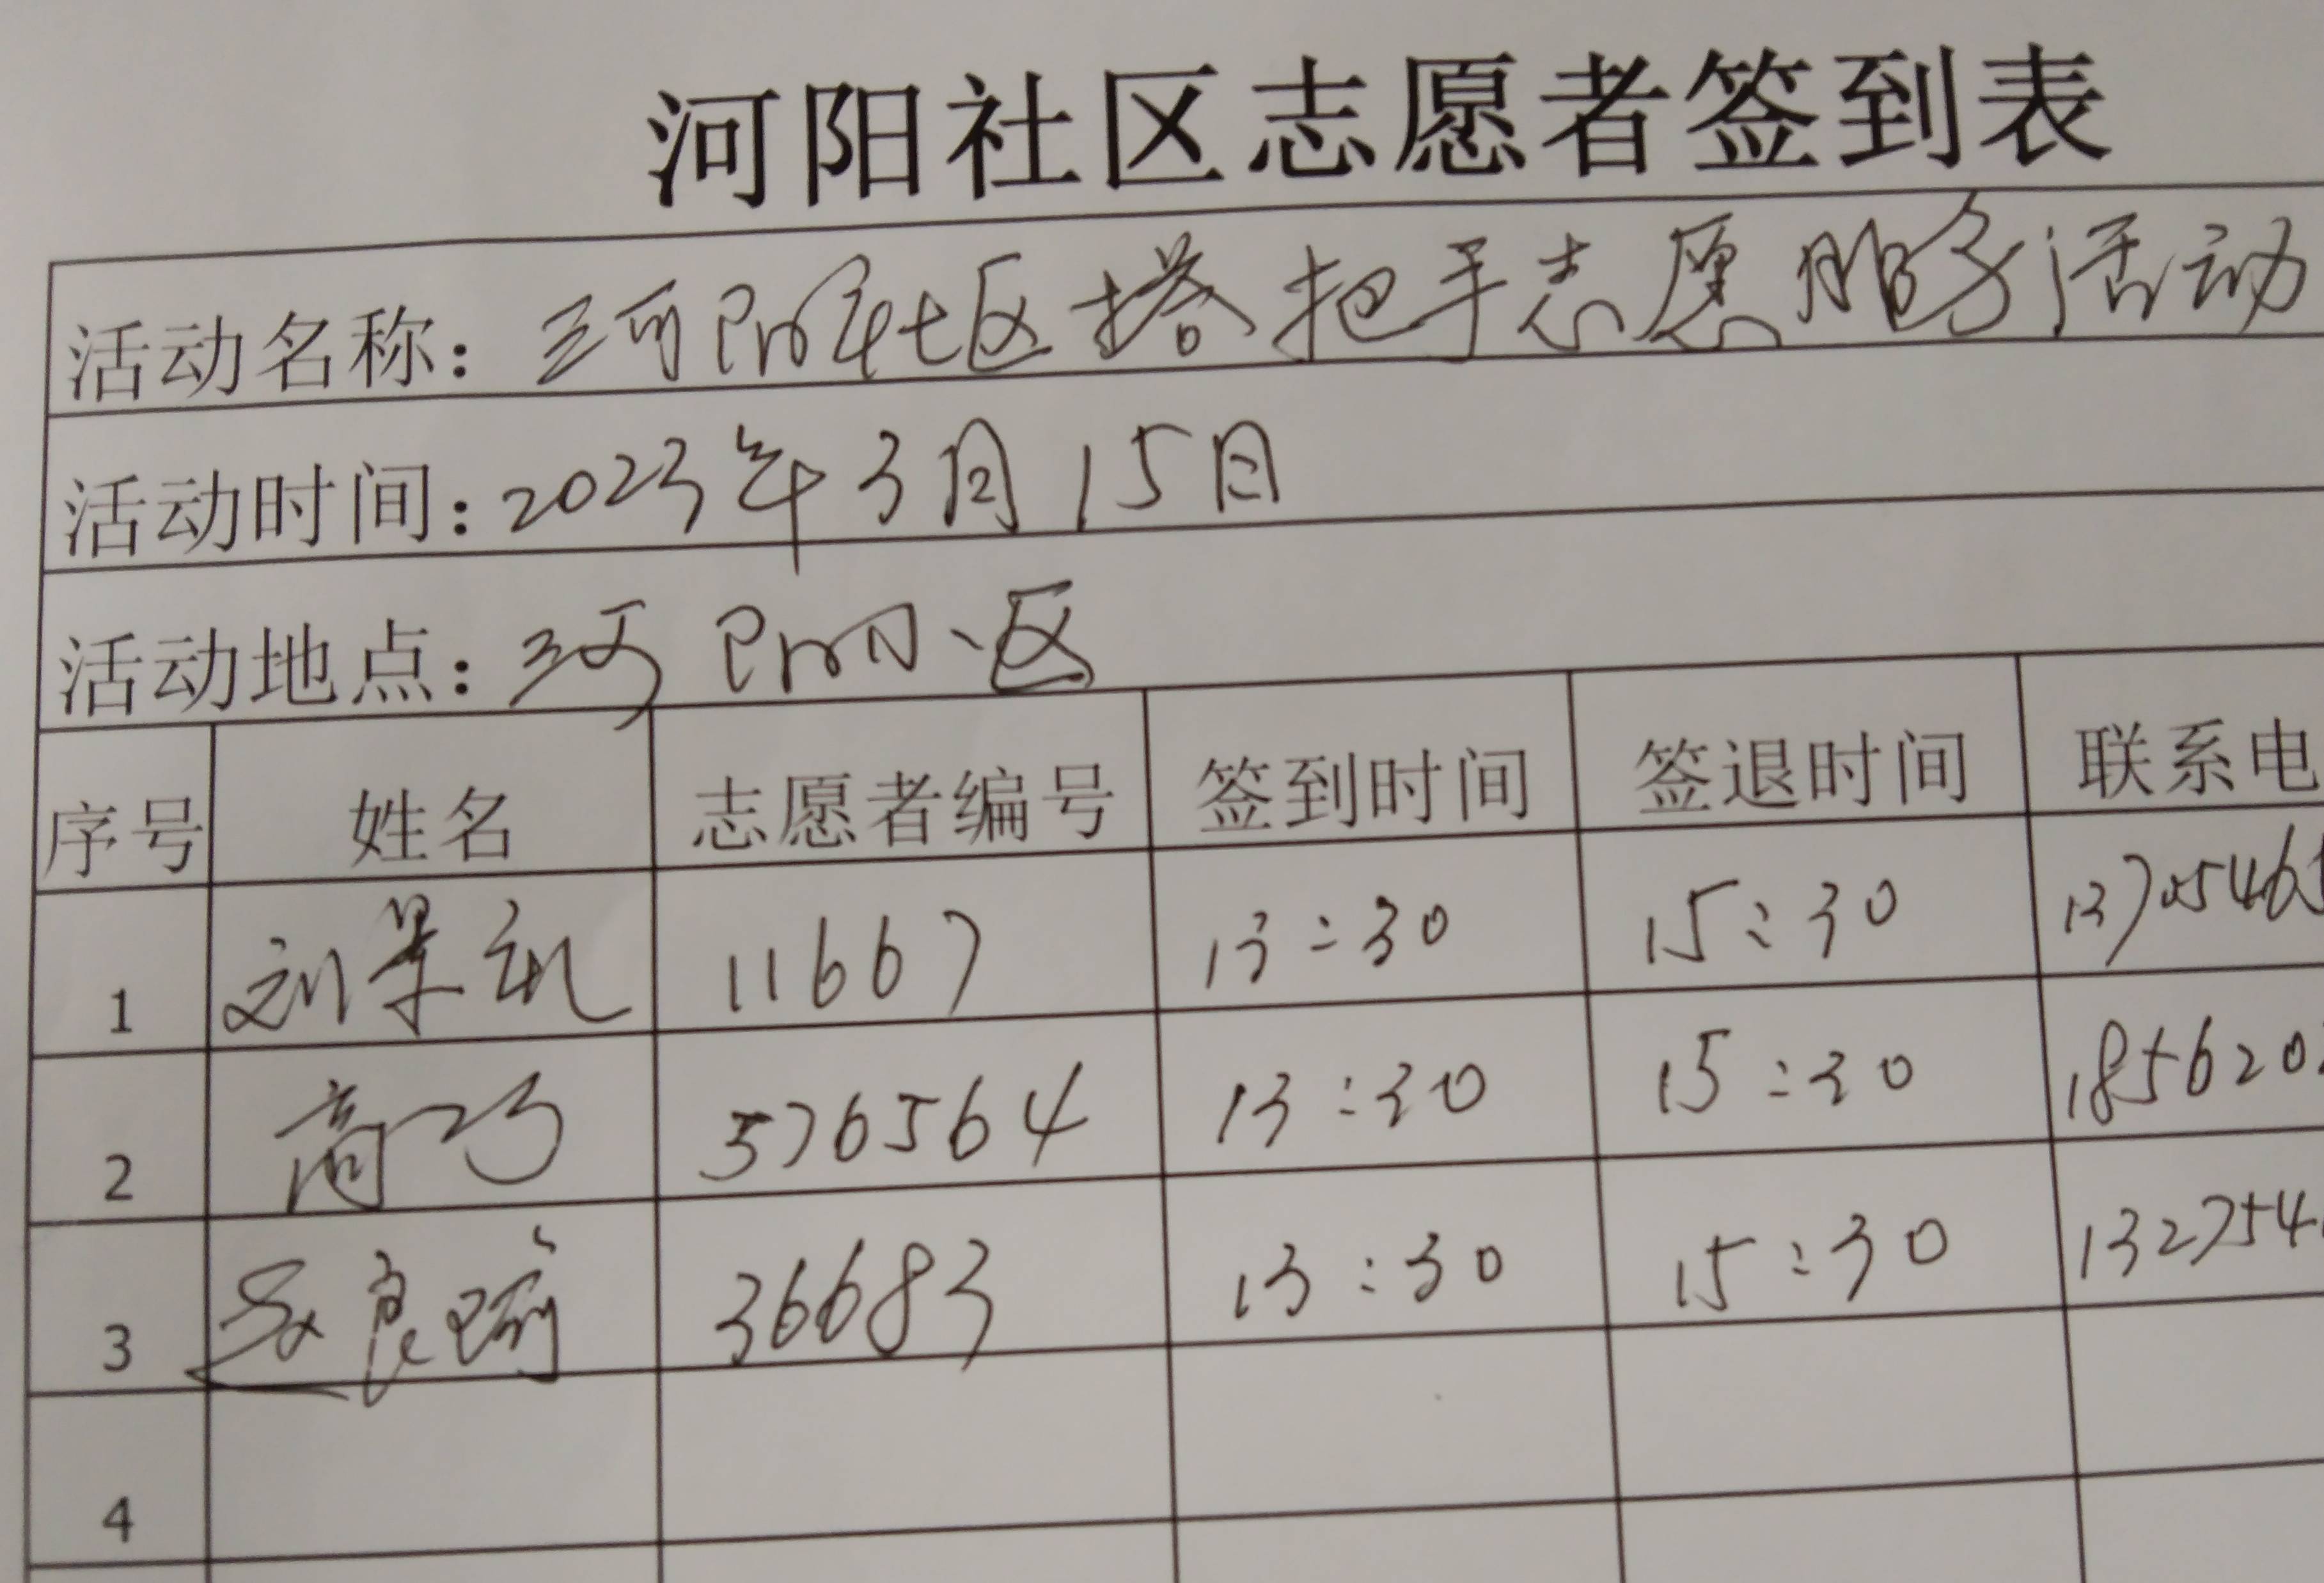 河阳社区志愿者签到表
活动名称：河阳社区搭把手志愿服务活动
活动时间：2023年3月15日
活动地点：河阳小区
序号 姓名 志愿者编号 签到时间 签退时间 联系电
1 刘 11667 13:30 15:30 1370546
2 商巧 576564 13:30 15:30 1856202
3 36683 13:30 15:30 132754
4